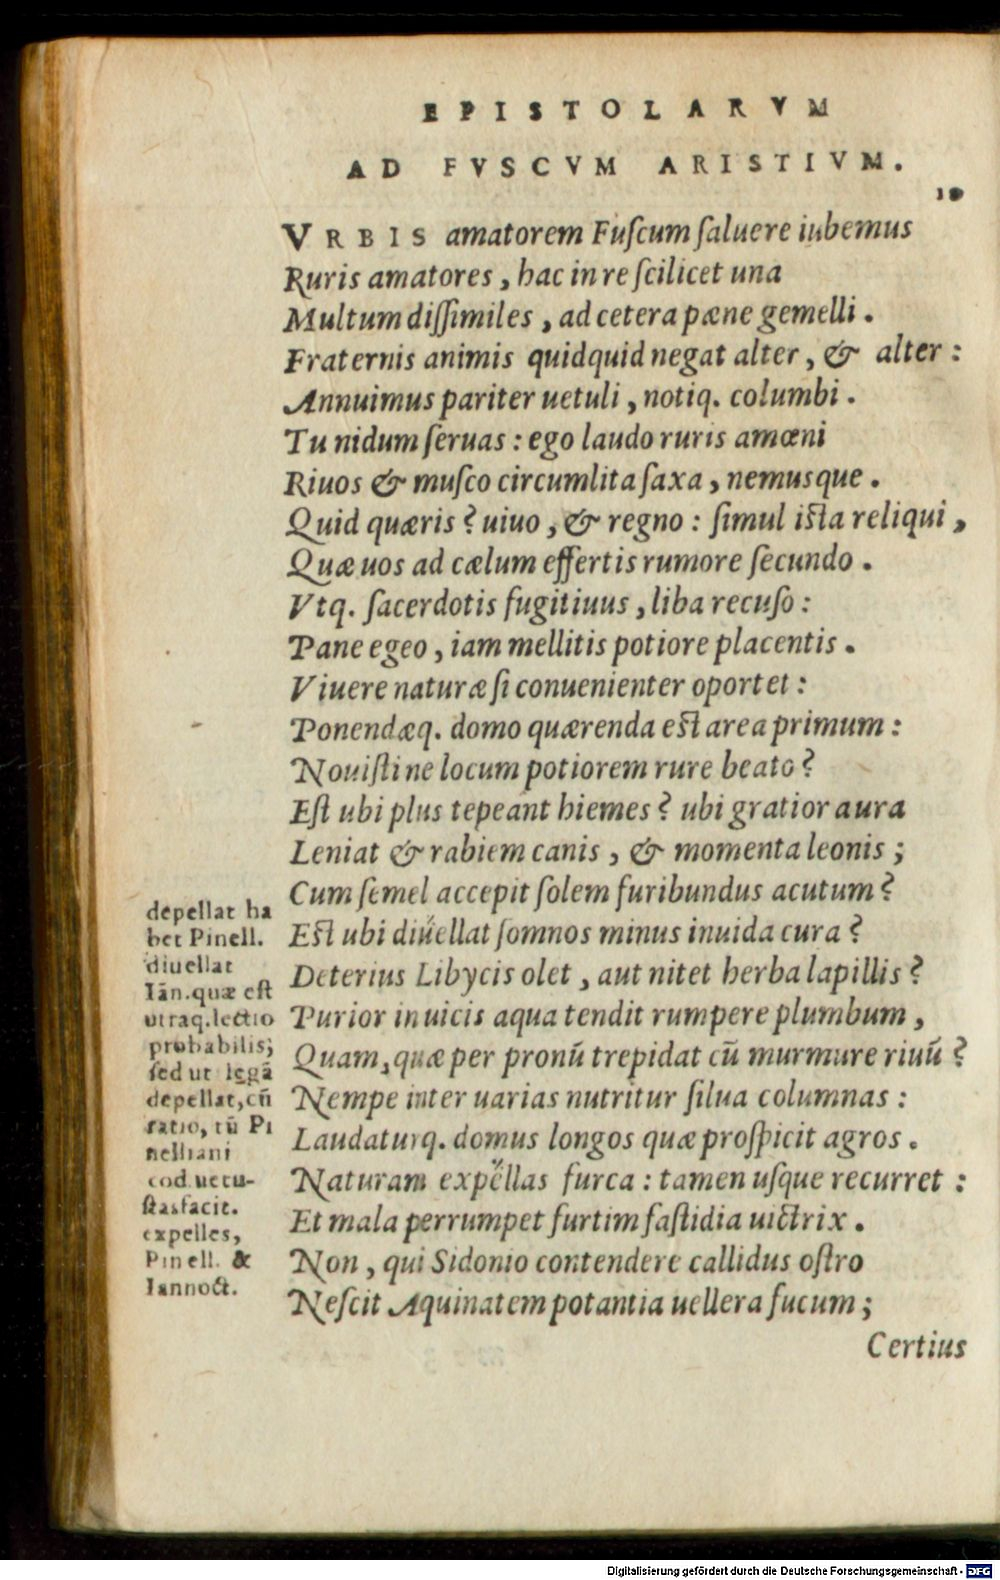 EPISTOLARVM
AD FVSCVM ARISTIVM.
10
VRBIS amatorem Fuſcum ſaluere iubemus
Ruris amatores, hac in re ſcilicet una
Multum diſſimiles, ad cetera pæne gemelli.
Fraternis animis quidquid negat alter, & alter:
Annuimus pariter uetuli, notiq. columbi.
Tu nidum ſeruas: ego laudo ruris amœni
Riuos & muſco circumlita ſaxa, nemusque.
Quid quæris? uiuo, & regno: ſimul iſta reliqui,
Quæ uos ad cælum effertis rumore ſecundo.
Vtq. ſacerdotis fugitiuus, liba recuſo:
Pane egeo, iam mellitis potiore placentis.
Viuere naturæ ſi conuenienter oportet:
Ponendæq. domo quærenda eſt area primum:
Nouiſti ne locum potiorem rure beato?
Eſt ubi plus tepeant hiemes? ubi gratior aura
Leniat & rabiem canis, & momenta leonis;
Cum ſemel accepit ſolem furibundus acutum?
Eſt ubi diuellat ſomnos minus inuida cura?
Deterius Libycis olet, aut nitet herba lapillis?
Purior in uicis aqua tendit rumpere plumbum,
Quam, quæ per pronū trepidat cū murmure riuū?
Nempe inter uarias nutritur ſilua columnas:
Laudaturq. domus longos quæ proſpicit agros.
Naturam expellas furca: tamen uſque recurret:
Et mala perrumpet furtim faſtidia uictrix.
Non, qui Sidonio contendere callidus oſtro
Neſcit Aquinatem potantia uellera fucum;
Certius
depellat ha
bet Pinell.
diuellat
Iān. quæ eſt
utraq. lectio
probabilis;
ſed ut legā
depellat, cū
ratio, tū Pi
nelliani
cod. uetu-
ſtas facit.
expelles,
Pinell. &
Iannoct.
Digitalisierung gefördert durch die Deutsche Forschungsgemeinschaft - DFG